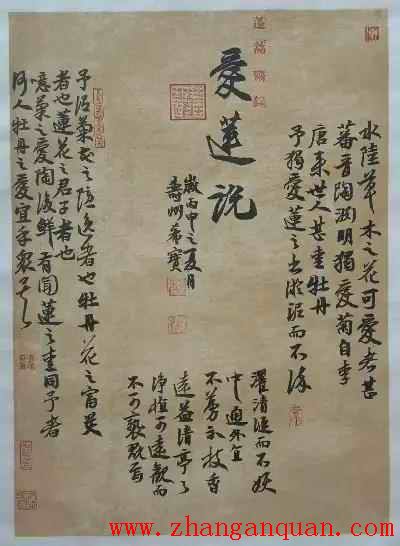 愛蓮说
水陸草木之花可愛者甚
蕃晋陶渊明獨愛菊自李
唐来世人甚愛牡丹
予獨愛蓮之出淤泥而不染
濯清漣而不妖
中通外直
不蔓不枝香
遠益清亭々
淨植可遠觀而
不可褻玩焉
予謂菊花之隐逸者也牡丹花之富貴
者也蓮花之君子者也
噫菊之愛陶後鮮有聞蓮之愛同予者
何人牡丹之愛宜乎眾矣
歲丙申之夏月
壽州希寶
www.zhanganquan.com